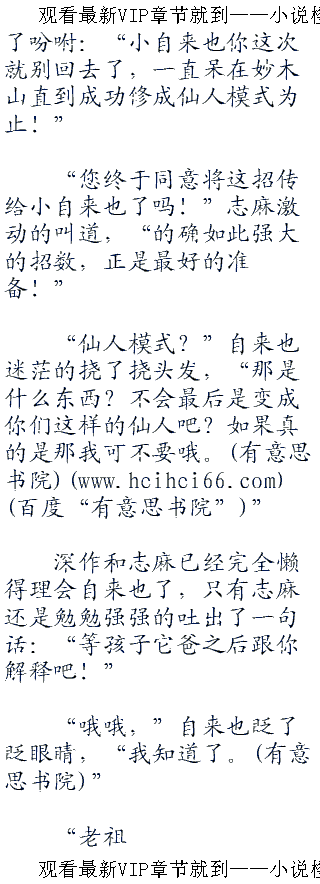 观看最新VIP章节就到——小说检
了吩咐：“小自来也你这次
就别回去了，一直呆在妙木
山直到成功修成仙人模式为
止！”
“您终于同意将这招传
给小自来也了吗！”志麻激
动的叫道，“的确如此强大
的招数，正是最好的准
备！”
“仙人模式？”自来也
迷茫的挠了挠头发，“那是
什么东西？不会最后是变成
你们这样的仙人吧？如果真
的是那我可不要哦。(有意思
书院)(www.hcihci66.com)
(百度“有意思书院”)”
深作和志麻已经完全懒
得理会自来也了，只有志麻
还是勉勉强强的吐出了一句
话：“等孩子它爸之后跟你
解释吧！”
“哦哦，”自来也眨了
眨眼睛，“我知道了。(有意
思书院)”
“老祖
观看最新VIP章节就到——小说